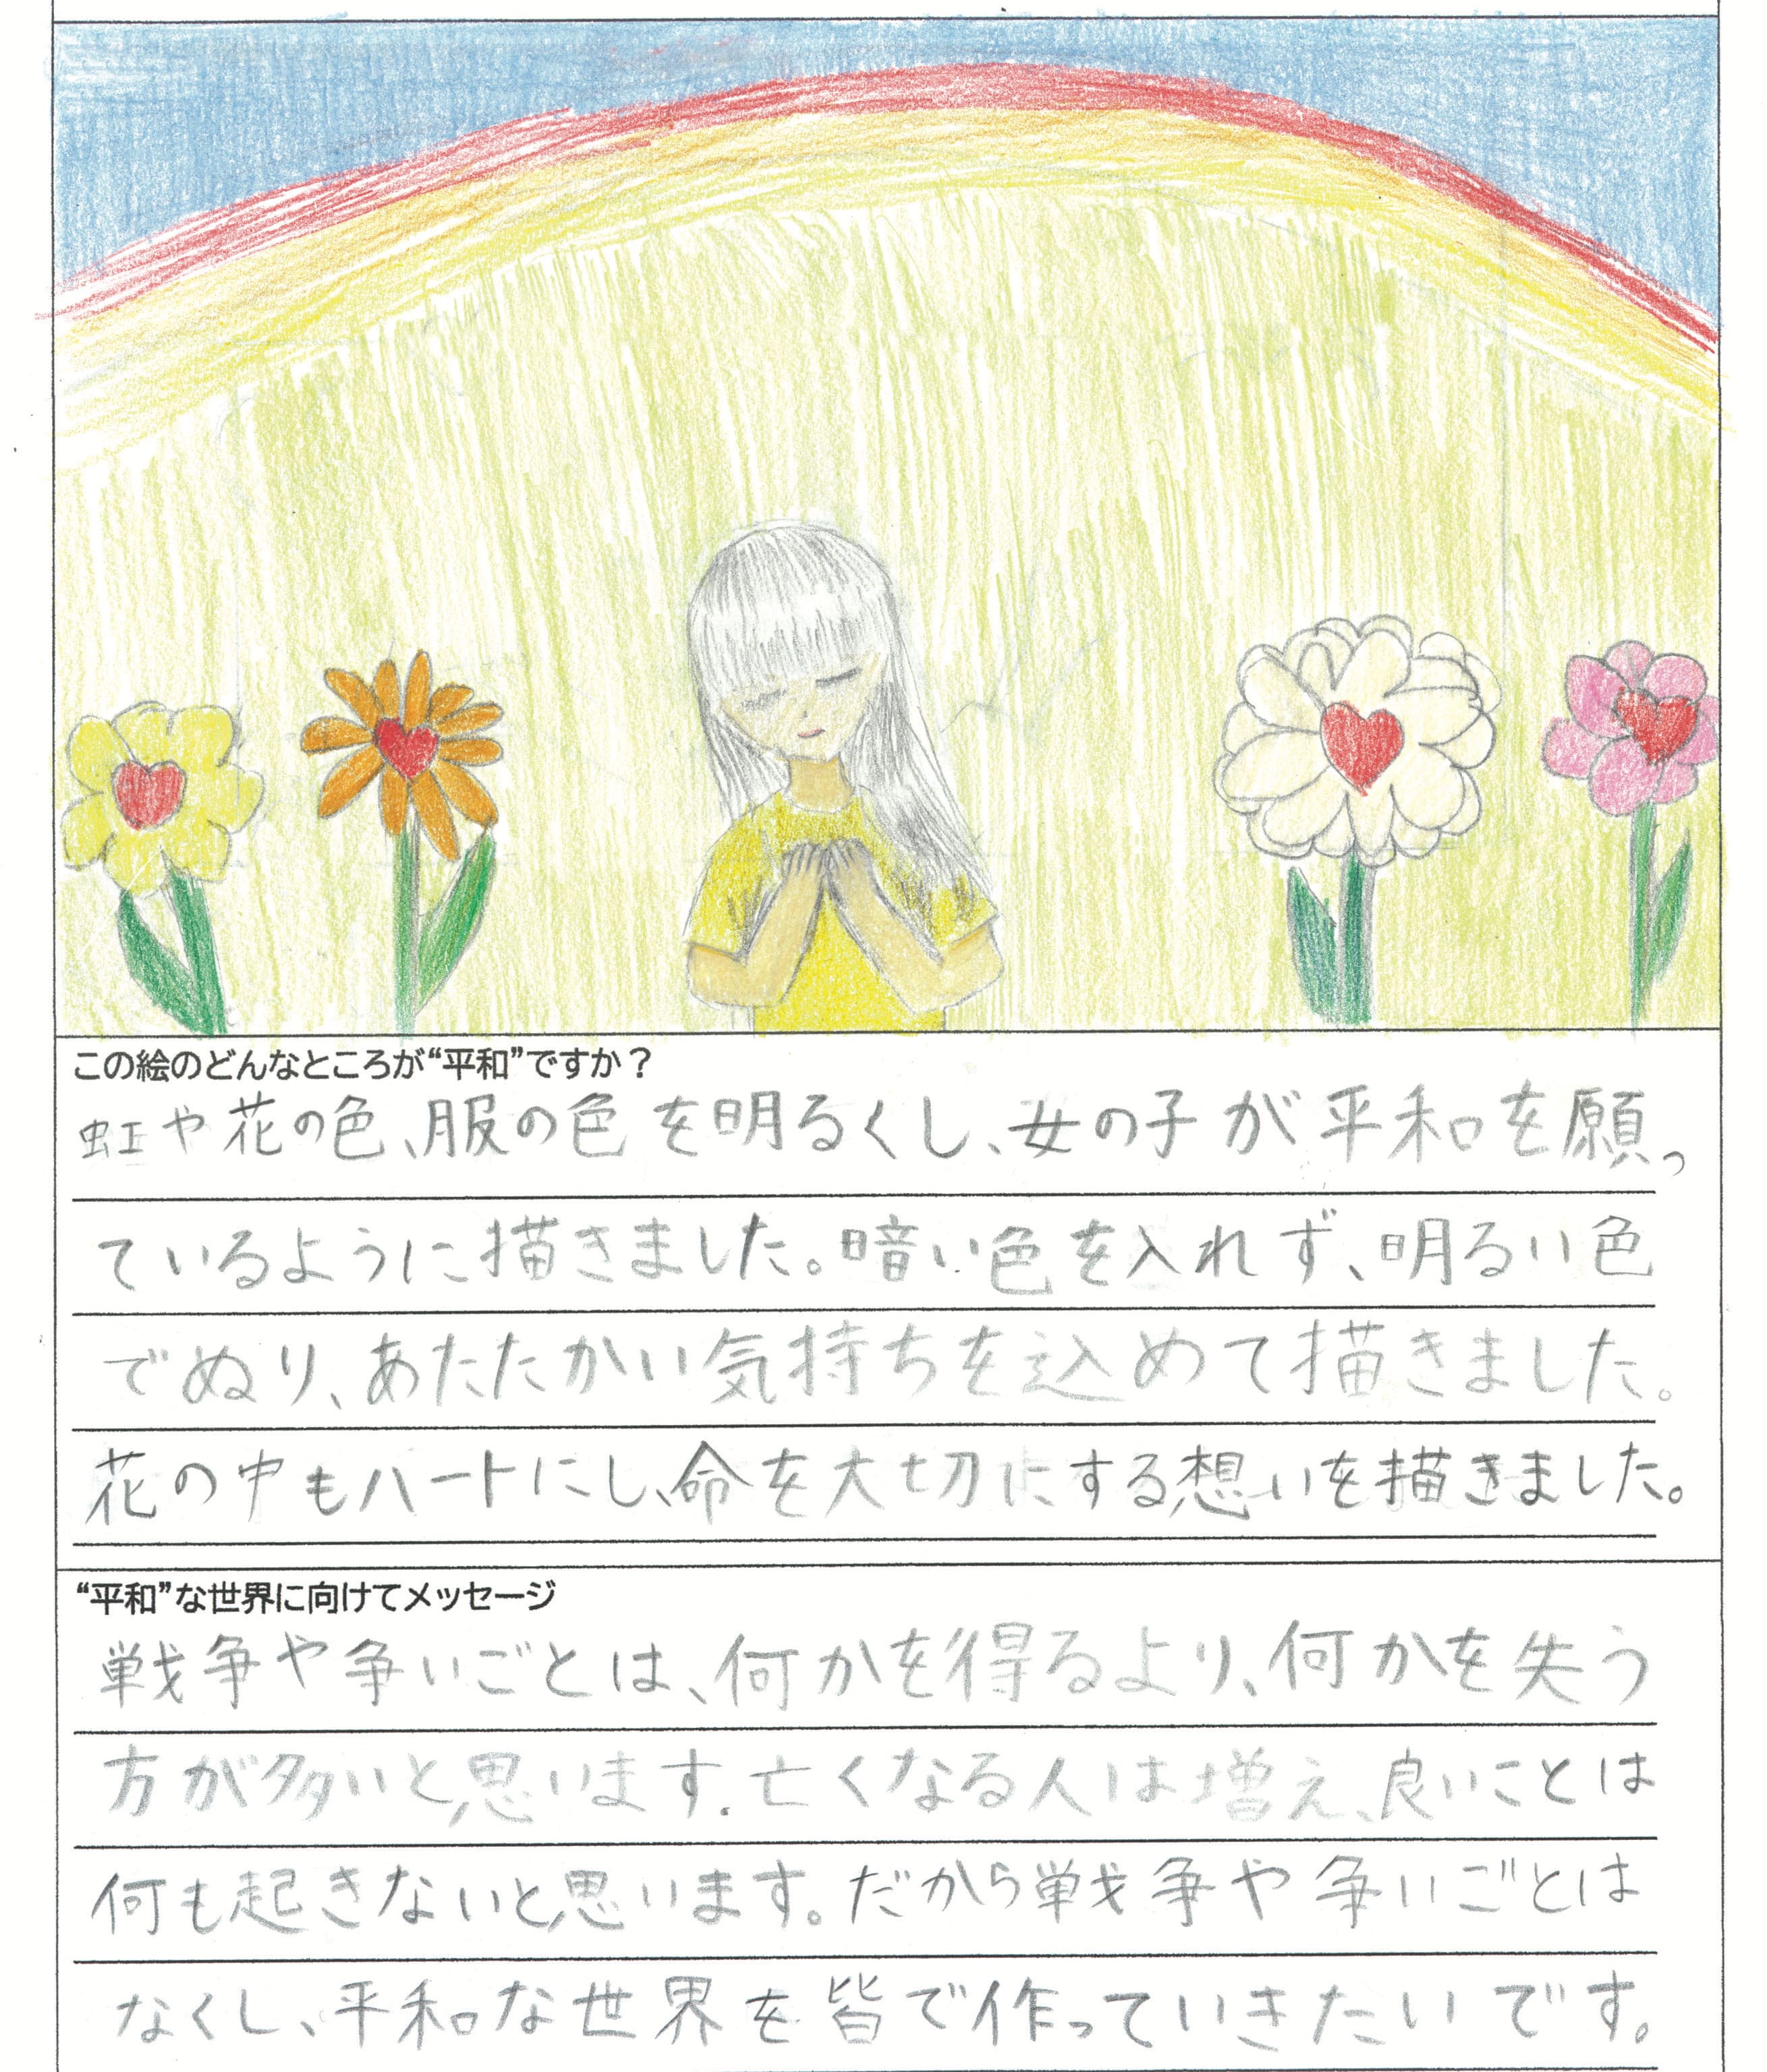 この絵のどんなところが“平和”ですか？
虹や花の色、服の色を明るくし、女の子が平和を願っ
ているように描きました。暗い色を入れず、明るい色
でぬり、あたたかい気持ちを込めて描きました。
花の中もハートにし、命を大切にする想いを描きました。
“平和”な世界に向けてメッセージ
戦争や争いごとは、何かを得るより、何かを失う
方が多いと思います。亡くなる人は増え、良いことは
何も起きないと思います。だから戦争や争いごとは
なくし、平和な世界を皆で作っていきたいです。